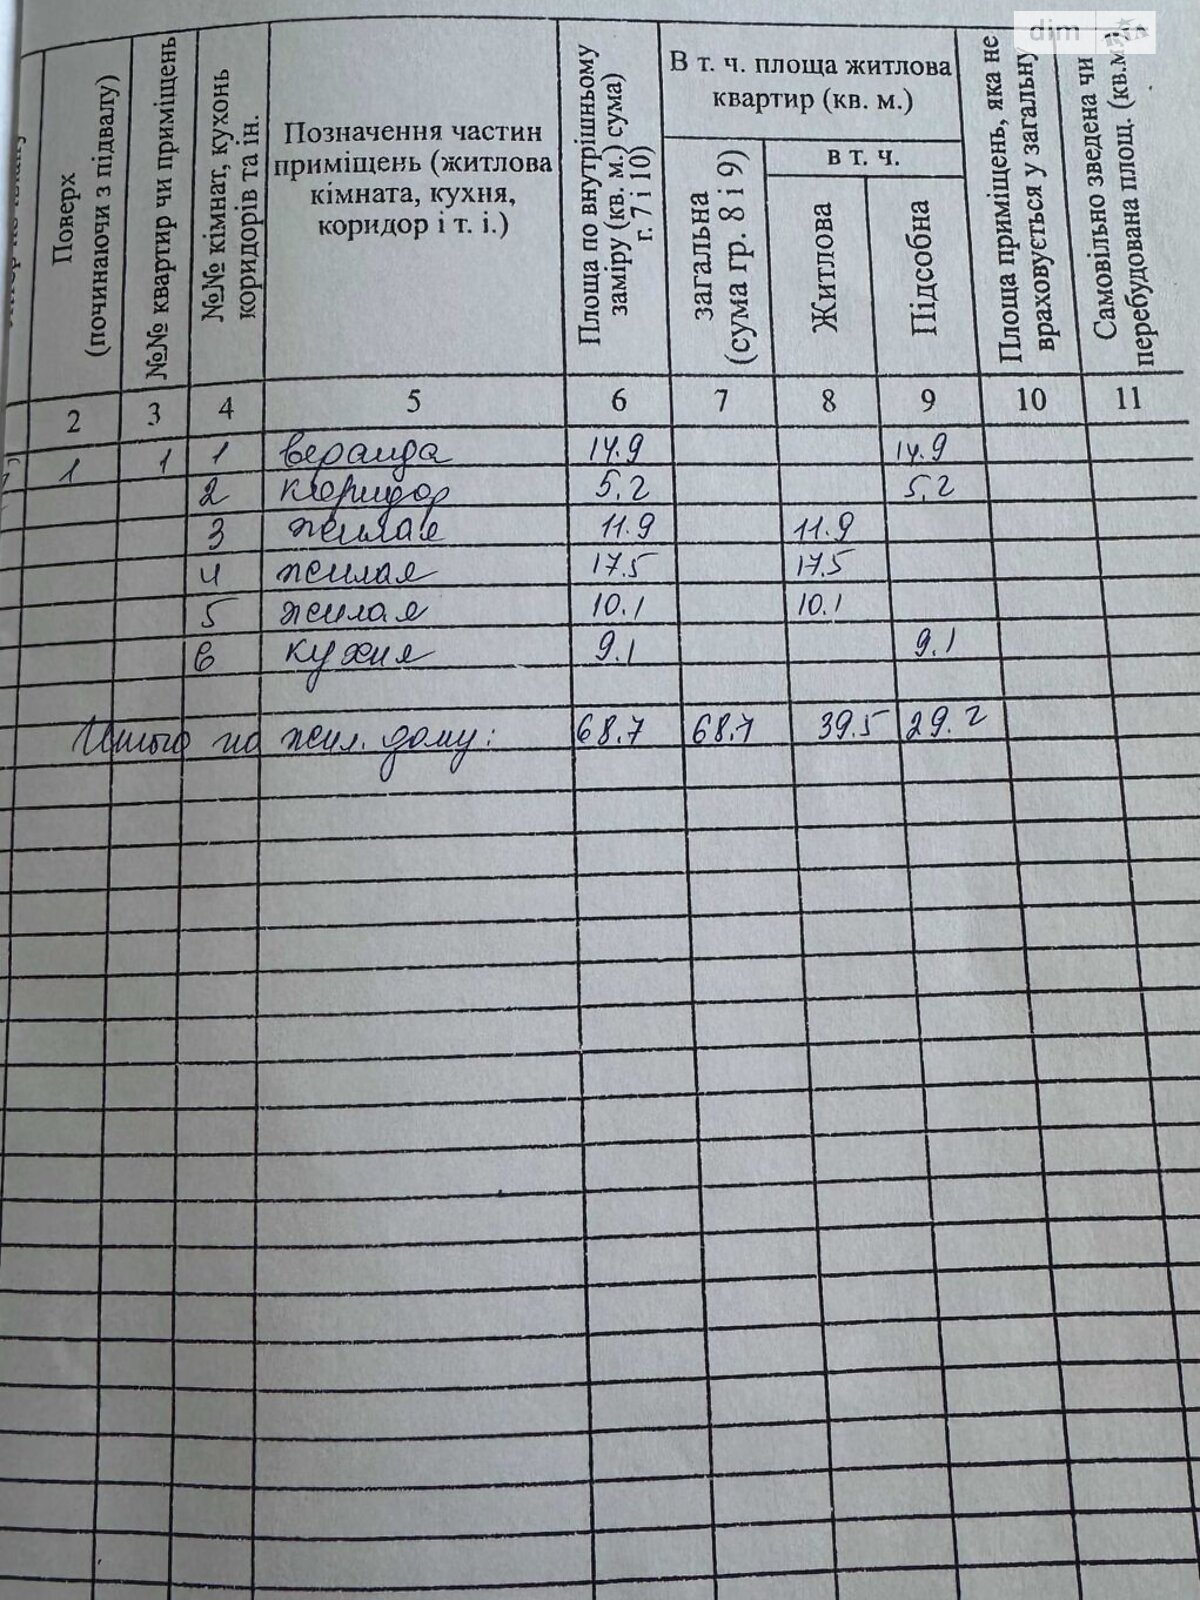 dim RIA
Поверх
(починаючи з підвалу)
№№ квартир чи приміщень
№№ кімнат, кухонь
коридорів та ін.
Позначення частин
приміщень (житлова
кімната, кухня,
коридор і т. і.)
Площа по внутрішньому
заміру (кв. м.) сума)
г. 7 і 10)
В т. ч. площа житлова
квартир (кв. м.)
загальна
(сума гр. 8 і 9)
в т. ч.
Житлова
Підсобна
Площа приміщень, яка не
враховується у загальну
Самовільно зведена чи
перебудована площ. (кв.м
2 3 4 5 6 7 8 9 10 11
1 1 1 веранда 14.9 14.9
2 коридор 5.2 5.2
3 жилая 11.9 11.9
4 жилая 17.5 17.5
5 жилая 10.1 10.1
6 кухня 9.1 9.1
Итого по жил. дому: 68.7 68.7 39.5 29.2